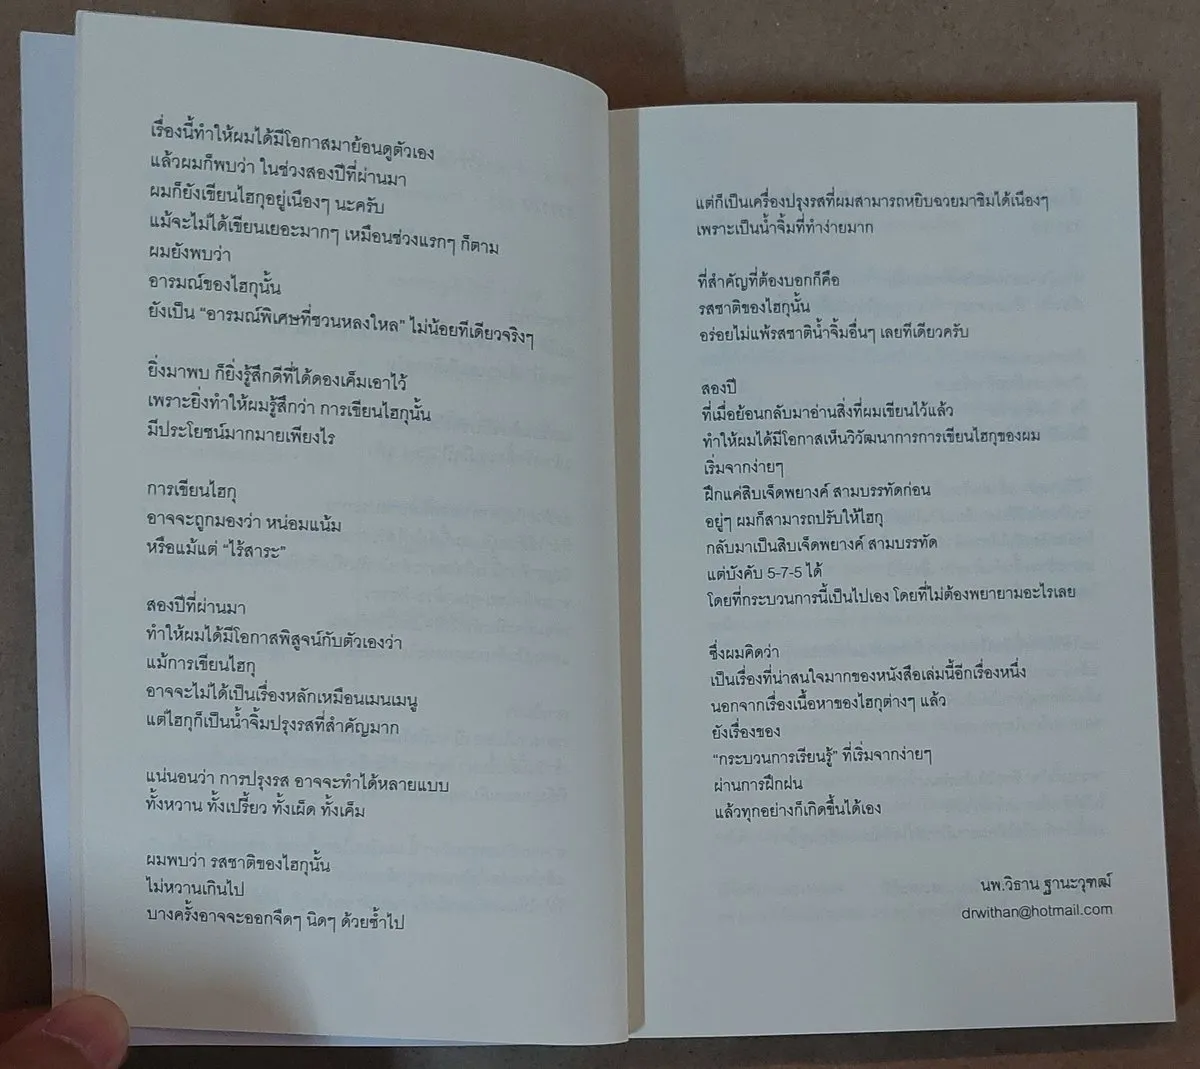 เรื่องนี้ทำให้ผมได้มีโอกาสมาย้อนดูตัวเอง
แล้วผมก็พบว่า ในช่วงสองปีที่ผ่านมา
ผมก็ยังเขียนไฮกุอยู่เนืองๆ นะครับ
แม้จะไม่ได้เขียนเยอะมากๆ เหมือนช่วงแรกๆ ก็ตาม
ผมยังพบว่า
อารมณ์ของไฮกุนั้น
ยังเป็น “อารมณ์พิเศษที่ชวนหลงใหล” ไม่น้อยทีเดียวจริงๆ
ยิ่งมาพบ ก็ยิ่งรู้สึกดีที่ได้ดองเค็มเอาไว้
เพราะยิ่งทำให้ผมรู้สึกว่า การเขียนไฮกุนั้น
มีประโยชน์มากมายเพียงไร
การเขียนไฮกุ
อาจจะถูกมองว่า หน่อมแน้ม
หรือแม้แต่ “ไร้สาระ”
สองปีที่ผ่านมา
ทำให้ผมได้มีโอกาสพิสูจน์กับตัวเองว่า
แม้การเขียนไฮกุ
อาจจะไม่ได้เป็นเรื่องหลักเหมือนเมนเมนู
แต่ไฮกุก็เป็นน้ำจิ้มปรุงรสที่สำคัญมาก
แน่นอนว่า การปรุงรส อาจจะทำได้หลายแบบ
ทั้งหวาน ทั้งเปรี้ยว ทั้งเผ็ด ทั้งเค็ม
ผมพบว่า รสชาติของไฮกุนั้น
ไม่หวานเกินไป
บางครั้งอาจจะออกจืดๆ นิดๆ ด้วยซ้ำไป
แต่ก็เป็นเครื่องปรุงรสที่ผมสามารถหยิบฉวยมาชิมได้เนืองๆ
เพราะเป็นน้ำจิ้มที่ทำง่ายมาก
ที่สำคัญที่ต้องบอกก็คือ
รสชาติของไฮกุนั้น
อร่อยไม่แพ้รสชาติน้ำจิ้มอื่นๆ เลยทีเดียวครับ
สองปี
ที่เมื่อย้อนกลับมาอ่านสิ่งที่ผมเขียนไว้แล้ว
ทำให้ผมได้มีโอกาสเห็นวิวัฒนาการการเขียนไฮกุของผม
เริ่มจากง่ายๆ
ฝึกแค่สิบเจ็ดพยางค์ สามบรรทัดก่อน
อยู่ๆ ผมก็สามารถปรับให้ไฮกุ
กลับมาเป็นสิบเจ็ดพยางค์ สามบรรทัด
แต่บังคับ 5-7-5 ได้
โดยที่กระบวนการนี้เป็นไปเอง โดยที่ไม่ต้องพยายามอะไรเลย
ซึ่งผมคิดว่า
เป็นเรื่องที่น่าสนใจมากของหนังสือเล่มนี้อีกเรื่องหนึ่ง
นอกจากเรื่องเนื้อหาของไฮกุต่างๆ แล้ว
ยังเรื่องของ
“กระบวนการเรียนรู้” ที่เริ่มจากง่ายๆ
ผ่านการฝึกฝน
แล้วทุกอย่างก็เกิดขึ้นได้เอง
นพ.วิธาน ฐานะวุฑฒ์
drwithan@hotmail.com